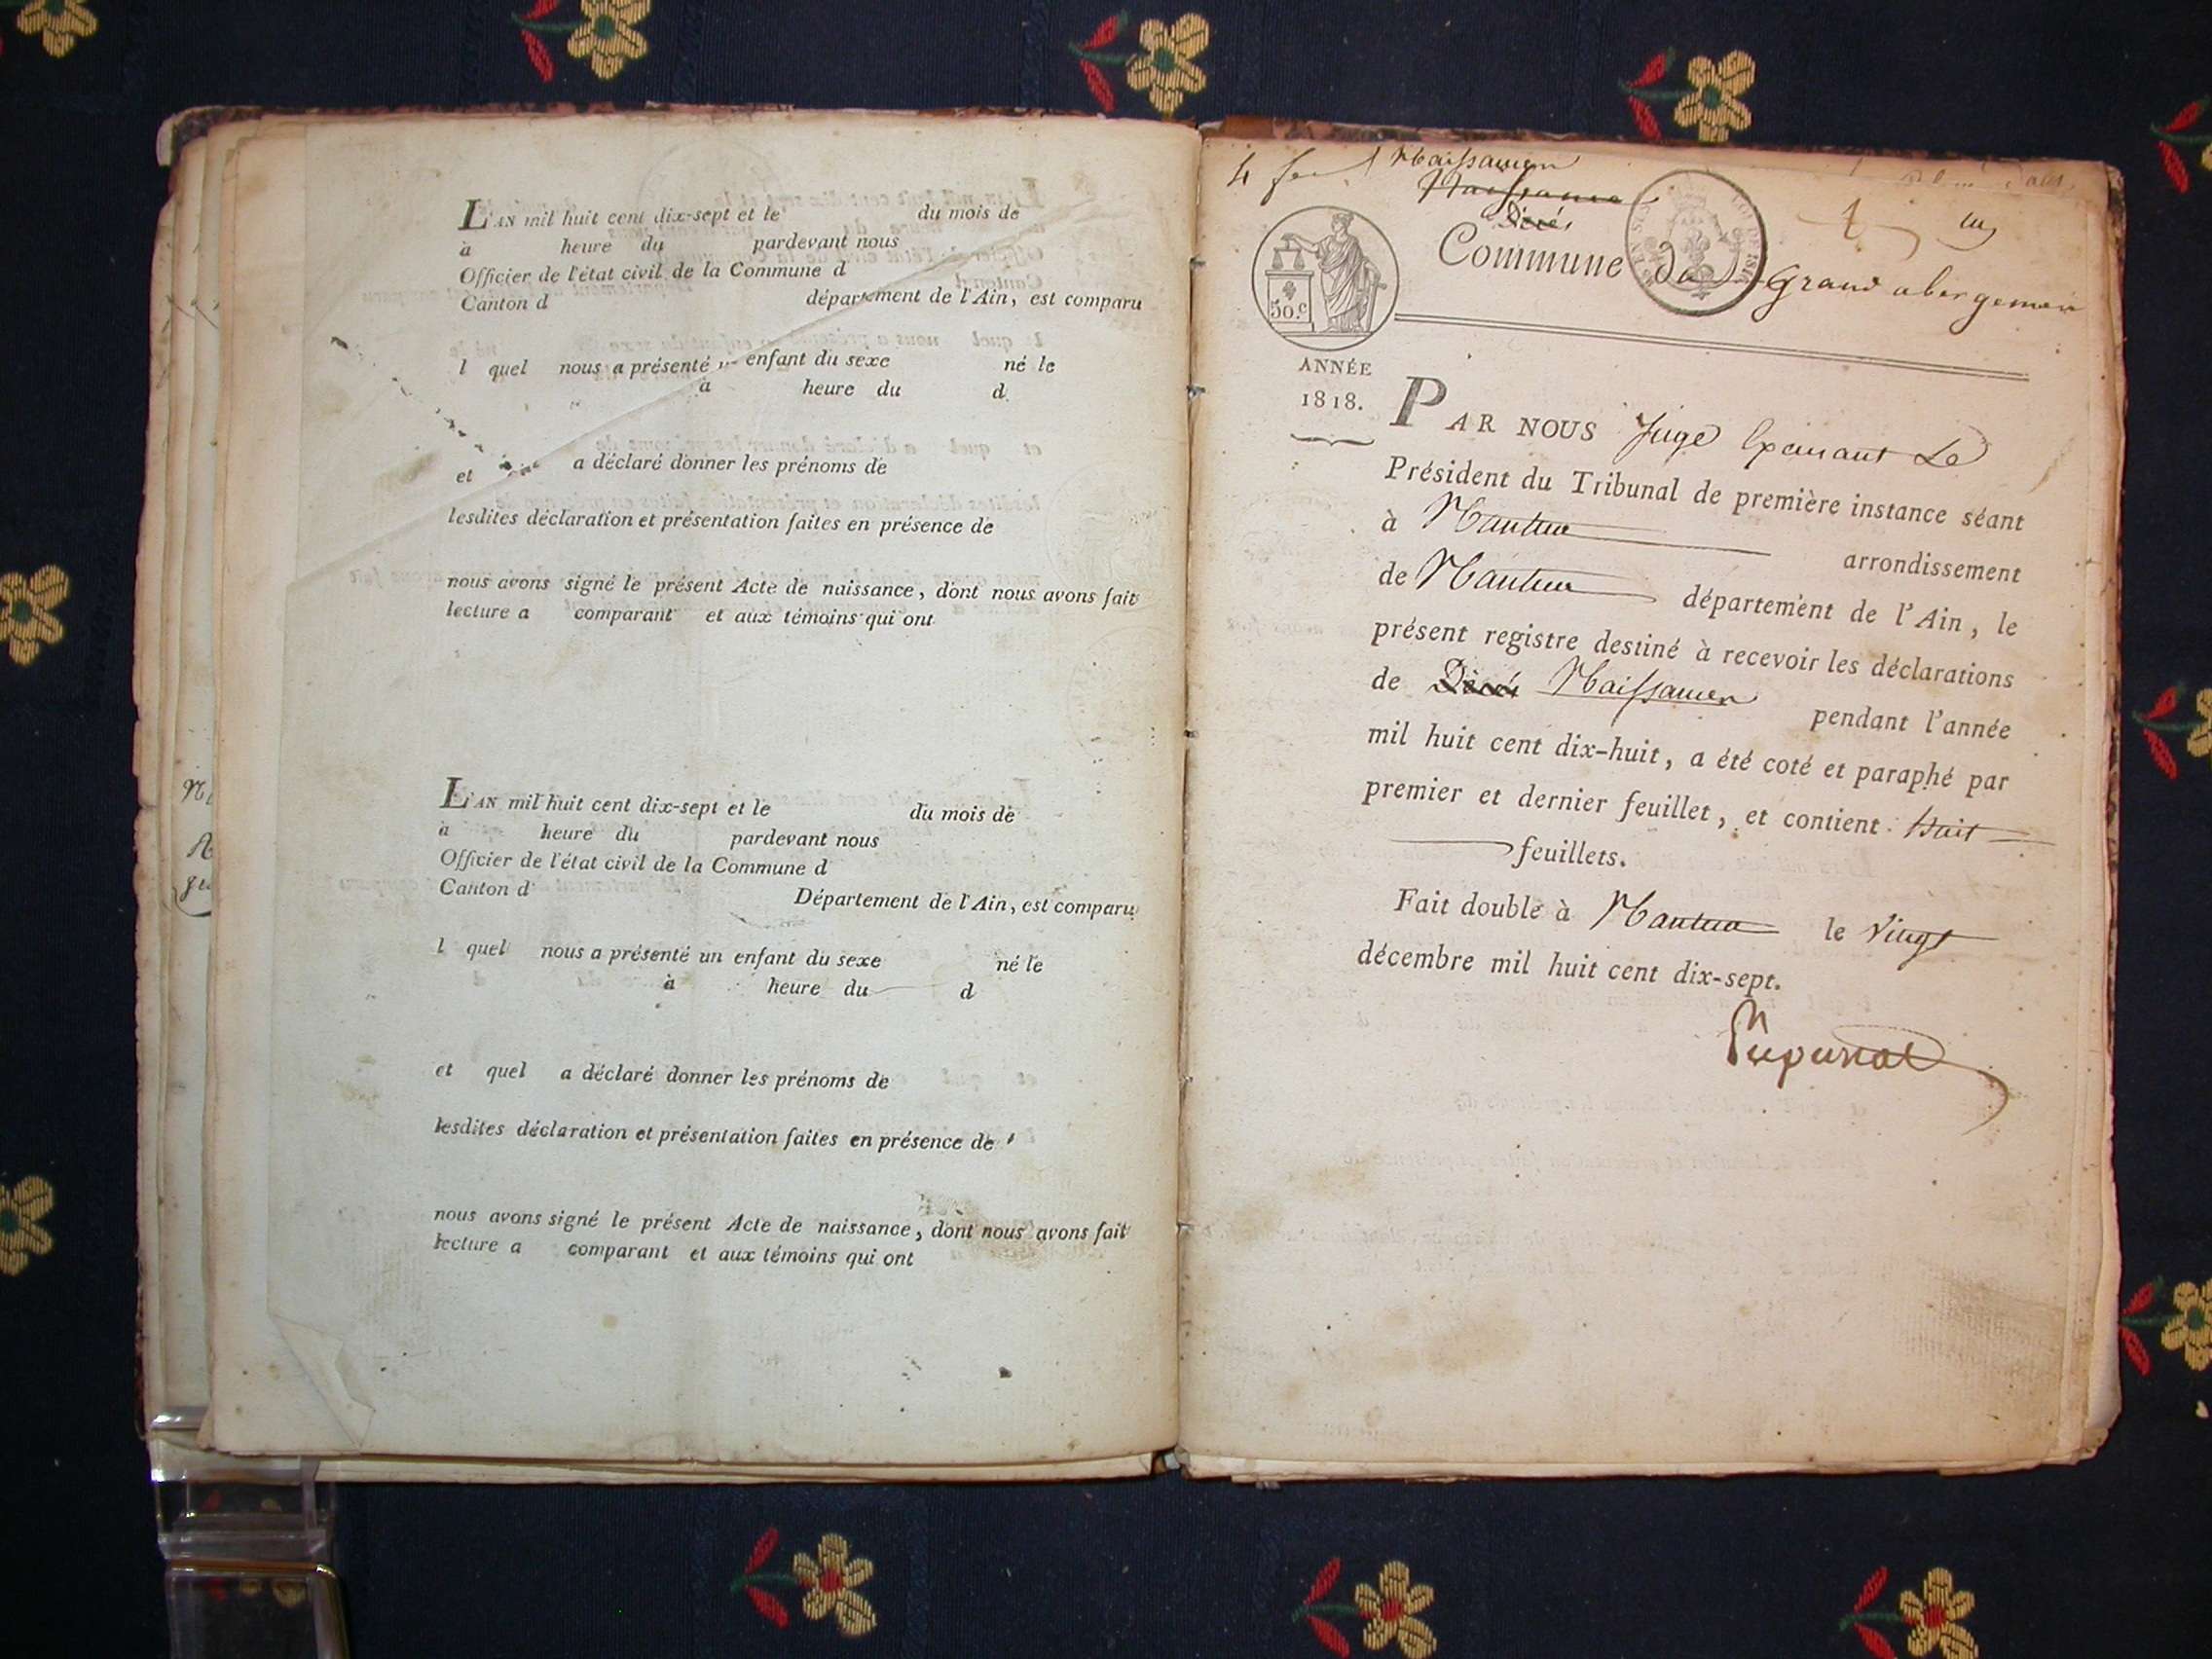 L'AN mil huit cent dix-sept et le du mois de
à heure du pardevant nous
Officier de l'état civil de la Commune d
Canton d département de l'Ain, est comparu
l quel nous a présenté un enfant du sexe né le
à heure du d
et a déclaré donner les prénoms de
lesdites déclaration et présentation faites en présence de
nous avons signé le présent Acte de naissance, dont nous avons fait
lecture a comparant et aux témoins qui ont
L'AN mil huit cent dix-sept et le du mois de
à heure du pardevant nous
Officier de l'état civil de la Commune d
Canton d Département de l'Ain, est comparu
l quel nous a présenté un enfant du sexe né le
à heure du d
et quel a déclaré donner les prénoms de
lesdites déclaration et présentation faites en présence de
nous avons signé le présent Acte de naissance, dont nous avons fait
lecture a comparant et aux témoins qui ont
4 Naissances
Naissances
Décés
Commune du Grand abergement
50.c
ANNÉE
1818.
PAR NOUS Juge Exerçant Le
Président du Tribunal de première instance séant
à Nantua arrondissement
de Nantua département de l'Ain, le
présent registre destiné à recevoir les déclarations
de Décés Naissances pendant l'année
mil huit cent dix-huit, a été coté et paraphé par
premier et dernier feuillet, et contient huit
feuillets.
Fait double à Nantua le vingt
décembre mil huit cent dix-sept.